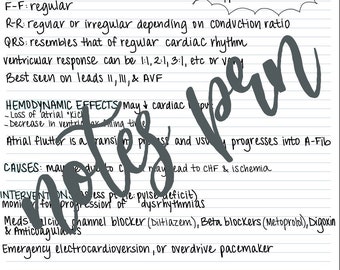 F-F: regular
R-R: regular or irregular depending on conduction ratio
QRS: resembles that of regular cardiac rhythm
ventricular response can be 1:1, 2:1, 3:1, etc or vary
Best seen on leads II, III, & AVF
HEMODYNAMIC EFFECTS: may ↓ cardiac output
- Loss of atrial "kick"
- Decrease in ventricular filling time
Atrial flutter is a transient process and usually progresses into A-Fib
CAUSES: may be due to may lead to CHF & ischemia.
INTERVENTIONS: (assess pt for pulse deficit)
monitor for progression of dysrhythmias
Meds: Calcium channel blocker (Diltiazem), Beta blockers (Metoprolol), Digoxin
& Anticoagulants
Emergency electrocardioversion, or overdrive pacemaker
notes pen